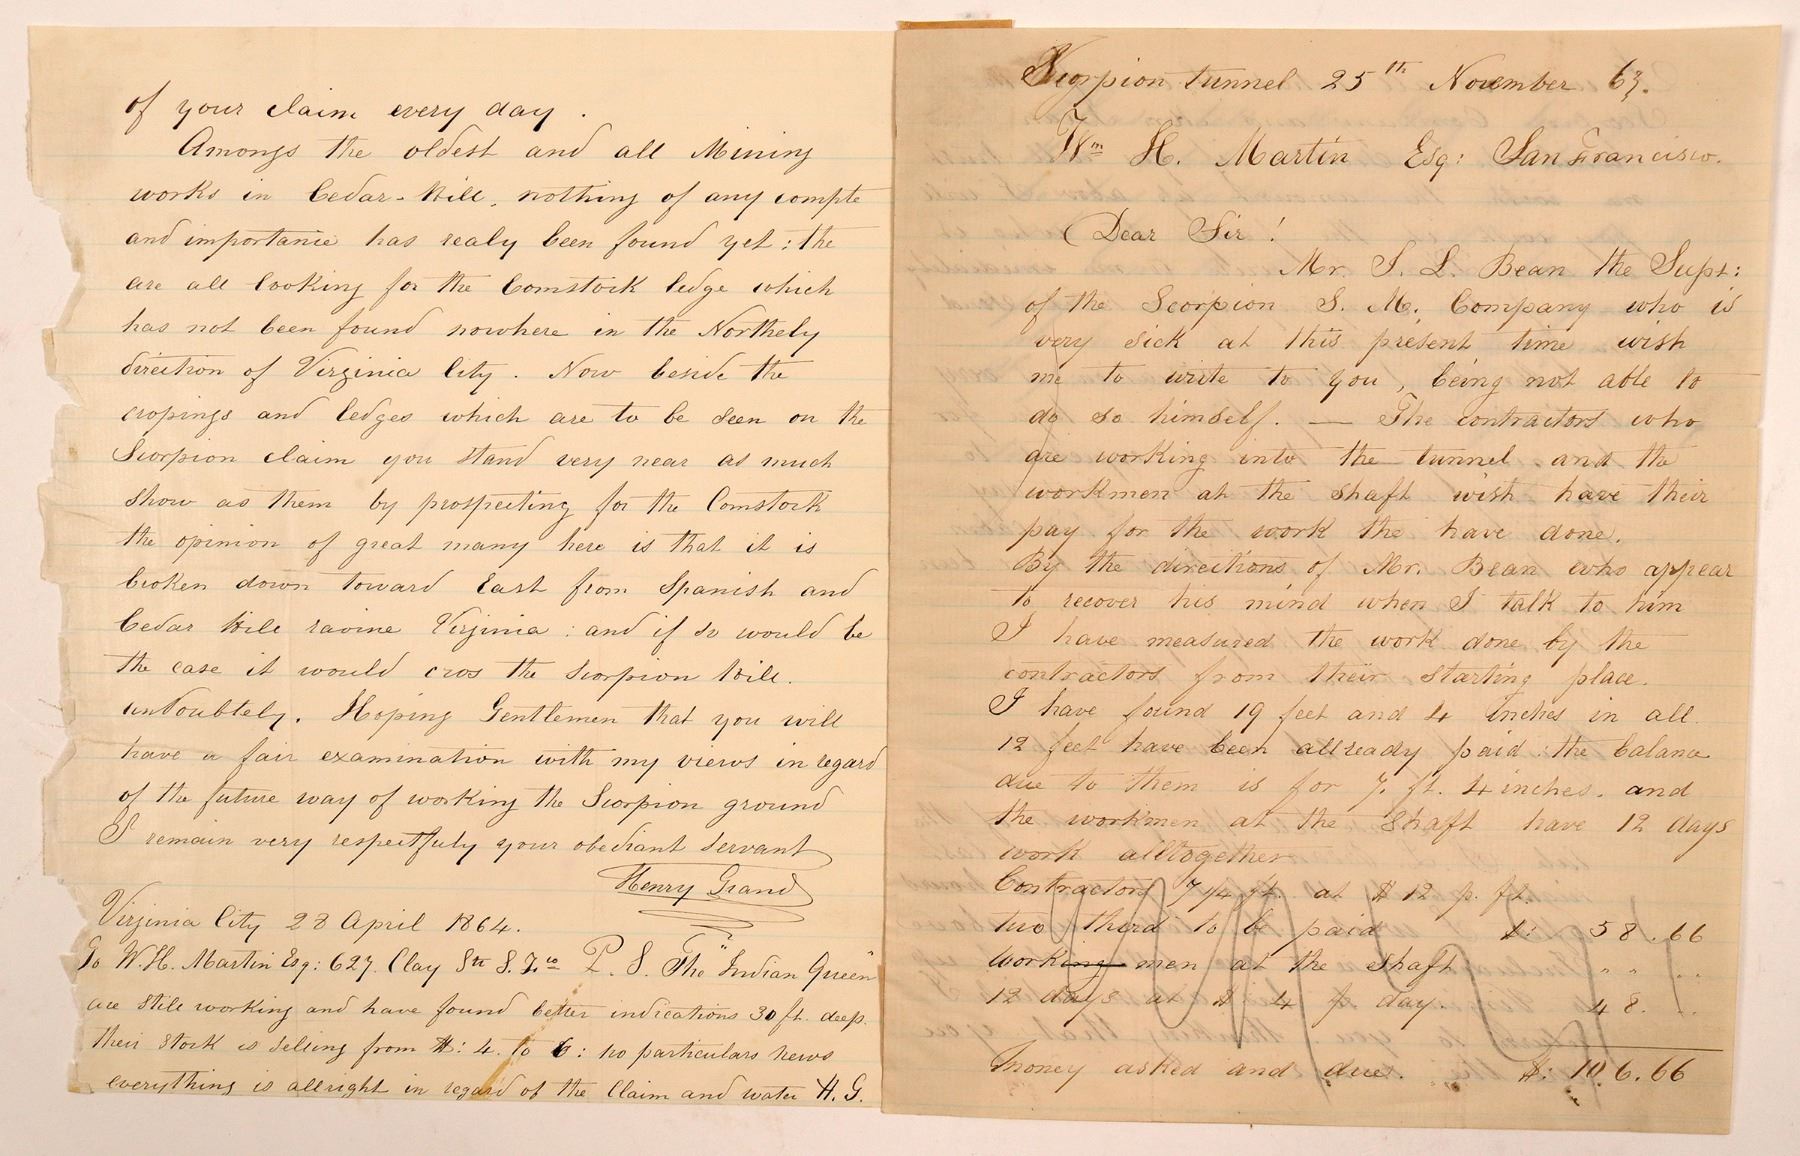 of your claim every day.
Amongs the oldest and all Mining
works in Cedar-Hill, nothing of any compte
and importanie has realy been found yet: the
are all looking for the Comstock ledge which
has not been found nowhere in the Northely
direction of Virginia City. Now beside the
cropings and ledges which are to be seen on the
Scorpion claim you stand very near as much
show as them by prospecting for the Comstock
the opinion of great many here is that it is
broken down toward East from Spanish and
Cedar Hill ravine Virginia: and if so would be
the case it would cros the Scorpion Hill.
undoubtely. Hoping Gentlemen that you will
have a fair examination with my views in regard
of the future way of working the Scorpion ground
I remain very respectfuly your obediant servant
Henry Grand
Virginia City 28 April 1864.
To W.H. Martin Esq: 627. Clay Str S. F.co P. S. The "Indian Queen"
are still working and have found better indications 30 ft. deep.
their stock is selling from $: 4. to 6: no particulars news
everything is allright in regard of the Claim and water H. G.
Scorpion tunnel 25th November 63.
Wm H. Martin Esq: San Francisco.
Dear Sir!
Mr. S. L. Bean the Supt:
of the Scorpion S. M. Company who is
very sick at this present time wish
me to write to you, being not able to
do so himself. — The contractors who
are working into the tunnel and the
workmen at the shaft wish have their
pay for the work the have done.
By the directions of Mr. Bean who appear
to recover his mind when I talk to him
I have measured the work done by the
contractors from their starting place.
I have found 19 feet and 4 inches in all.
12 feet have been allready paid: the balance
due to them is for 7. ft. 4 inches. and
the workmen at the shaft have 12 days
work alltogether
Contractors 7 4/ ft. at $ 12 p. ft.
two third to be paid $: 58.66
working men at the shaft " " ..
12 days at $ 4 p. day. 48. ..
money asked and due. $: 106.66